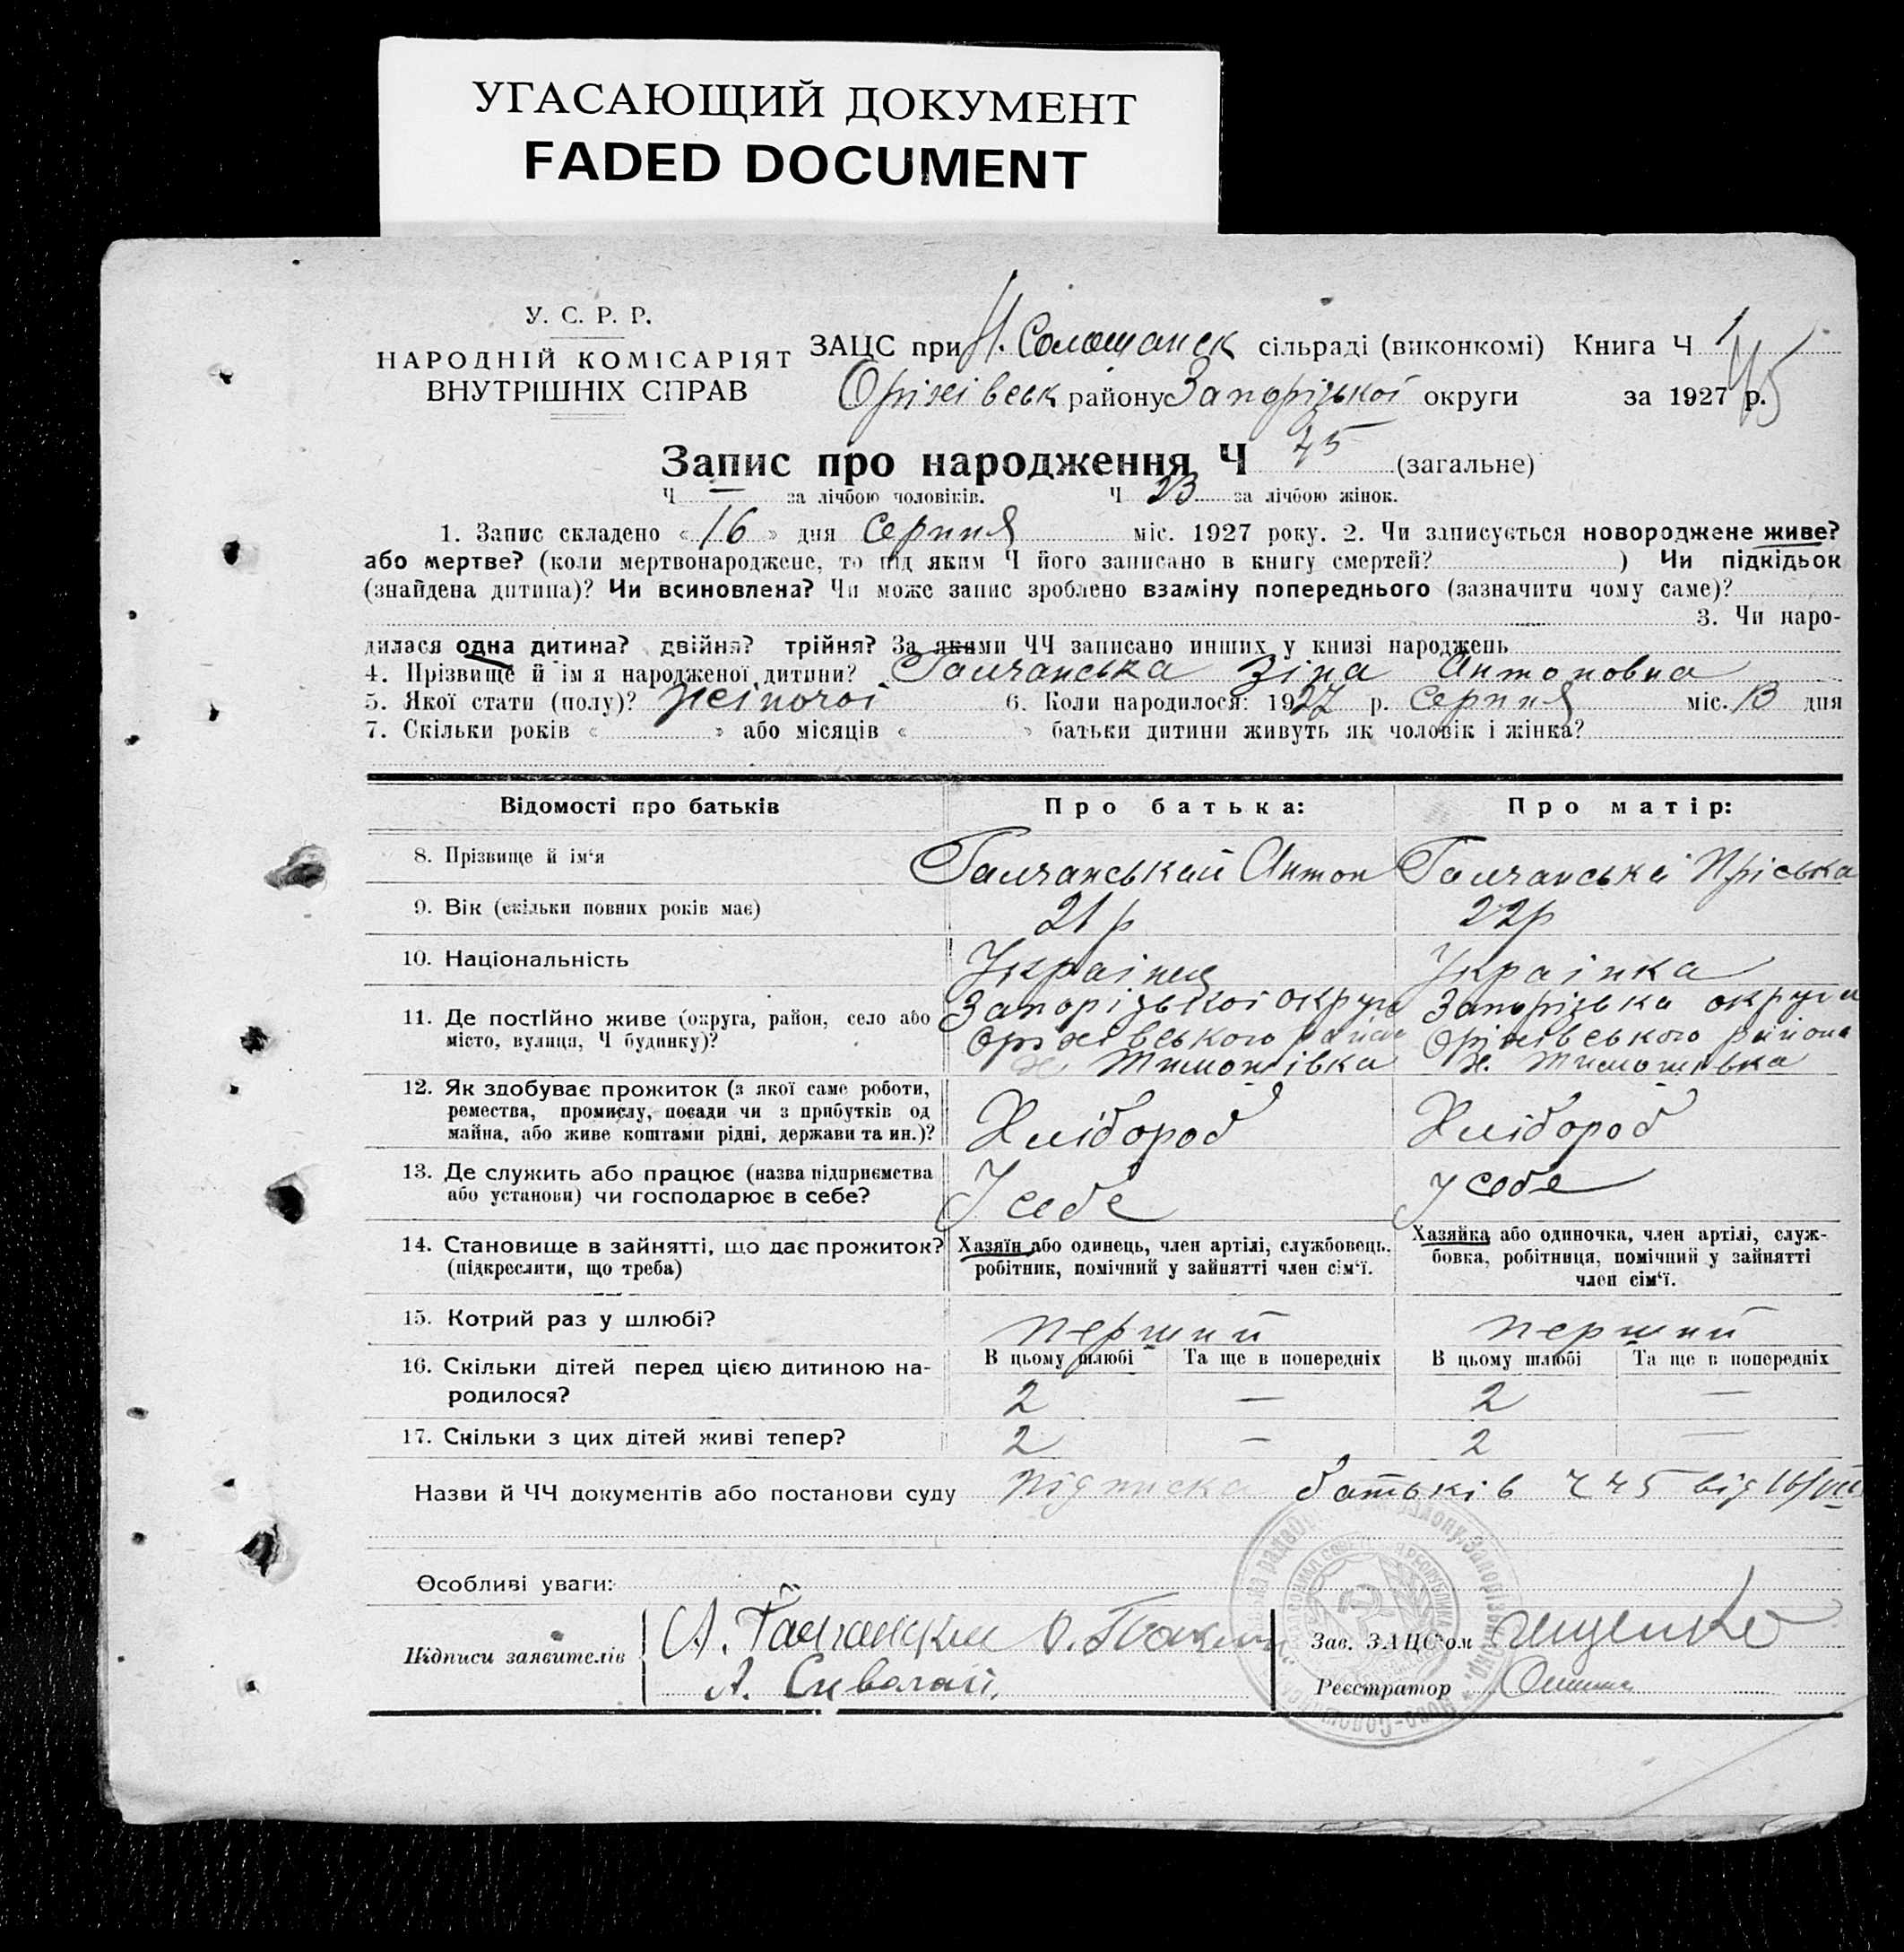 УГАСАЮЩИЙ ДОКУМЕНТ
FADED DOCUMENT
У. С. Р. Р.
НАРОДНІЙ КОМІСАРІЯТ
ВНУТРІШНІХ СПРАВ
ЗАЦС при Н. Солошанск сільраді (виконкомі) Книга Ч 1
Оріхівськ району Запорізької округи за 1927 р.
45
Запис про народження Ч 45 (загальне)
Ч — за лічбою чоловіків. Ч 23 за лічбою жінок.
1. Запис складено « 16 » дня Серпня міс. 1927 року. 2. Чи записується новороджене живе?
або мертве? (коли мертвонароджене, то під яким Ч його записано в книгу смертей? ) Чи підкідьок
(знайдена дитина)? Чи всиновлена? Чи може запис зроблено взаміну попереднього (зазначити чому саме)?
3. Чи наро-
дилася одна дитина? двійня? трійня? За якими ЧЧ записано инших у книзі народжень
4. Прізвище й ім я народженої дитини? Галчанська Зіна Антоновна
5. Якої стати (полу)? Жіночої 6. Коли народилося: 1927 р. Серпня міс. 13 дня
7. Скільки років « » або місяців « » батьки дитини живуть як чоловік і жінка?
Відомості про батьків Про батька: Про матір:
8. Прізвище й ім‘я Галчанський Антон Галчанська Пріська
9. Вік (скільки повних років має) 21 р 22 р
10. Національність Українец Українка
11. Де постійно живе (округа, район, село або Запорізької округи Запорізька округа
місто, вулиця, Ч будинку)? Оріхівського район Оріхівського района
х. Тимошівка х. Тимошівка
12. Як здобуває прожиток (з якої саме роботи,
ремества, промислу, посади чи з прибутків од Хлібороб Хлібороб
майна, або живе коштами рідні, держави та ин.)?
13. Де служить або працює (назва підприємства
або установи) чи господарює в себе? У себе у себе
14. Становище в зайнятті, що дає прожиток? Хазяїн або одинець, член артілі, службовець, Хазяйка або одиночка, член артілі, служ-
(підкреслити, що треба) робітник, помічний у зайнятті член сім‘ї. бовка, робітниця, помічний у зайнятті
член сім‘ї.
15. Котрий раз у шлюбі? перший перший
16. Скільки дітей перед цією дитиною на- В цьому шлюбі Та ще в попередніх В цьому шлюбі Та ще в попередніх
родилося? 2 — 2 —
17. Скільки з цих дітей живі тепер? 2 — 2 —
Назви й ЧЧ документів або постанови суду підписка батьків Ч 45 від 16/VIII
Особливі уваги:
Підписи заявителів А. Галчанский Зав. ЗАЦС‘ом Ищенко
А. Сиволап. Реєстратор